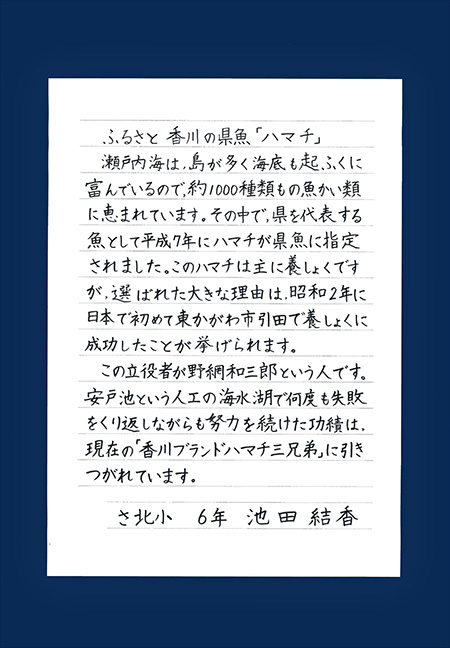 ふるさと 香川の県魚「ハマチ」
瀬戸内海は、島が多く海底も起ふくに
富んでいるので、約1000種類もの魚かい類
に恵まれています。その中で、県を代表する
魚として平成7年にハマチが県魚に指定
されました。このハマチは主に養しょくです
が、選ばれた大きな理由は、昭和2年に
日本で初めて東かがわ市引田で養しょくに
成功したことが挙げられます。
この立役者が野網和三郎という人です。
安戸池という人工の海水湖で何度も失敗
をくり返しながらも努力を続けた功績は、
現在の「香川ブランドハマチ三兄弟」に引き
つがれています。
さ北小 6年 池田結香